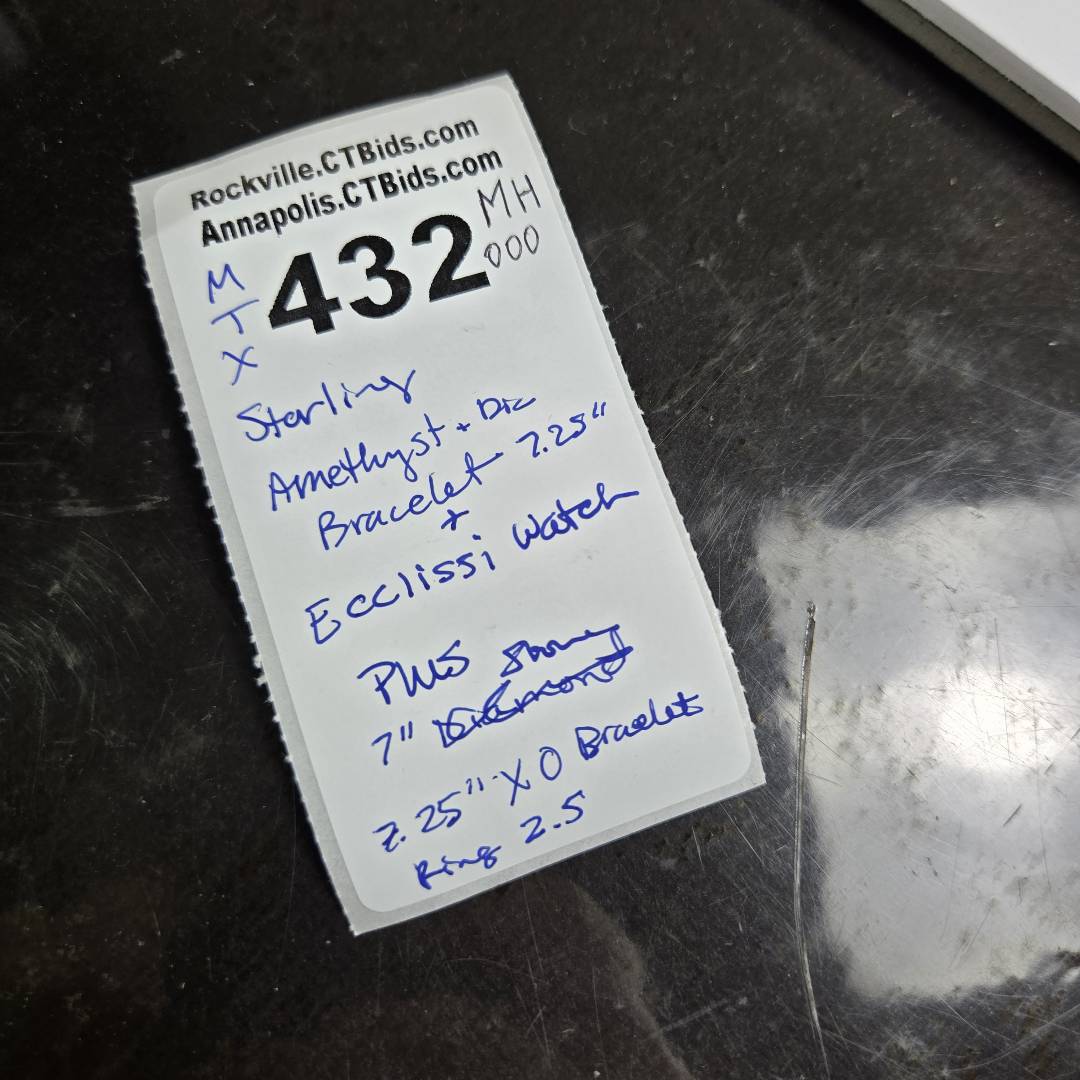 Rockville.CTBids.com
Annapolis.CTBids.com
MTX 432 MH
000
Sterling
Amethyst + Dia
Bracelet 7.25"
+
Ecclissi watch
Plus
7" Diamond
7.25" XO Bracelets
Ring 2.5